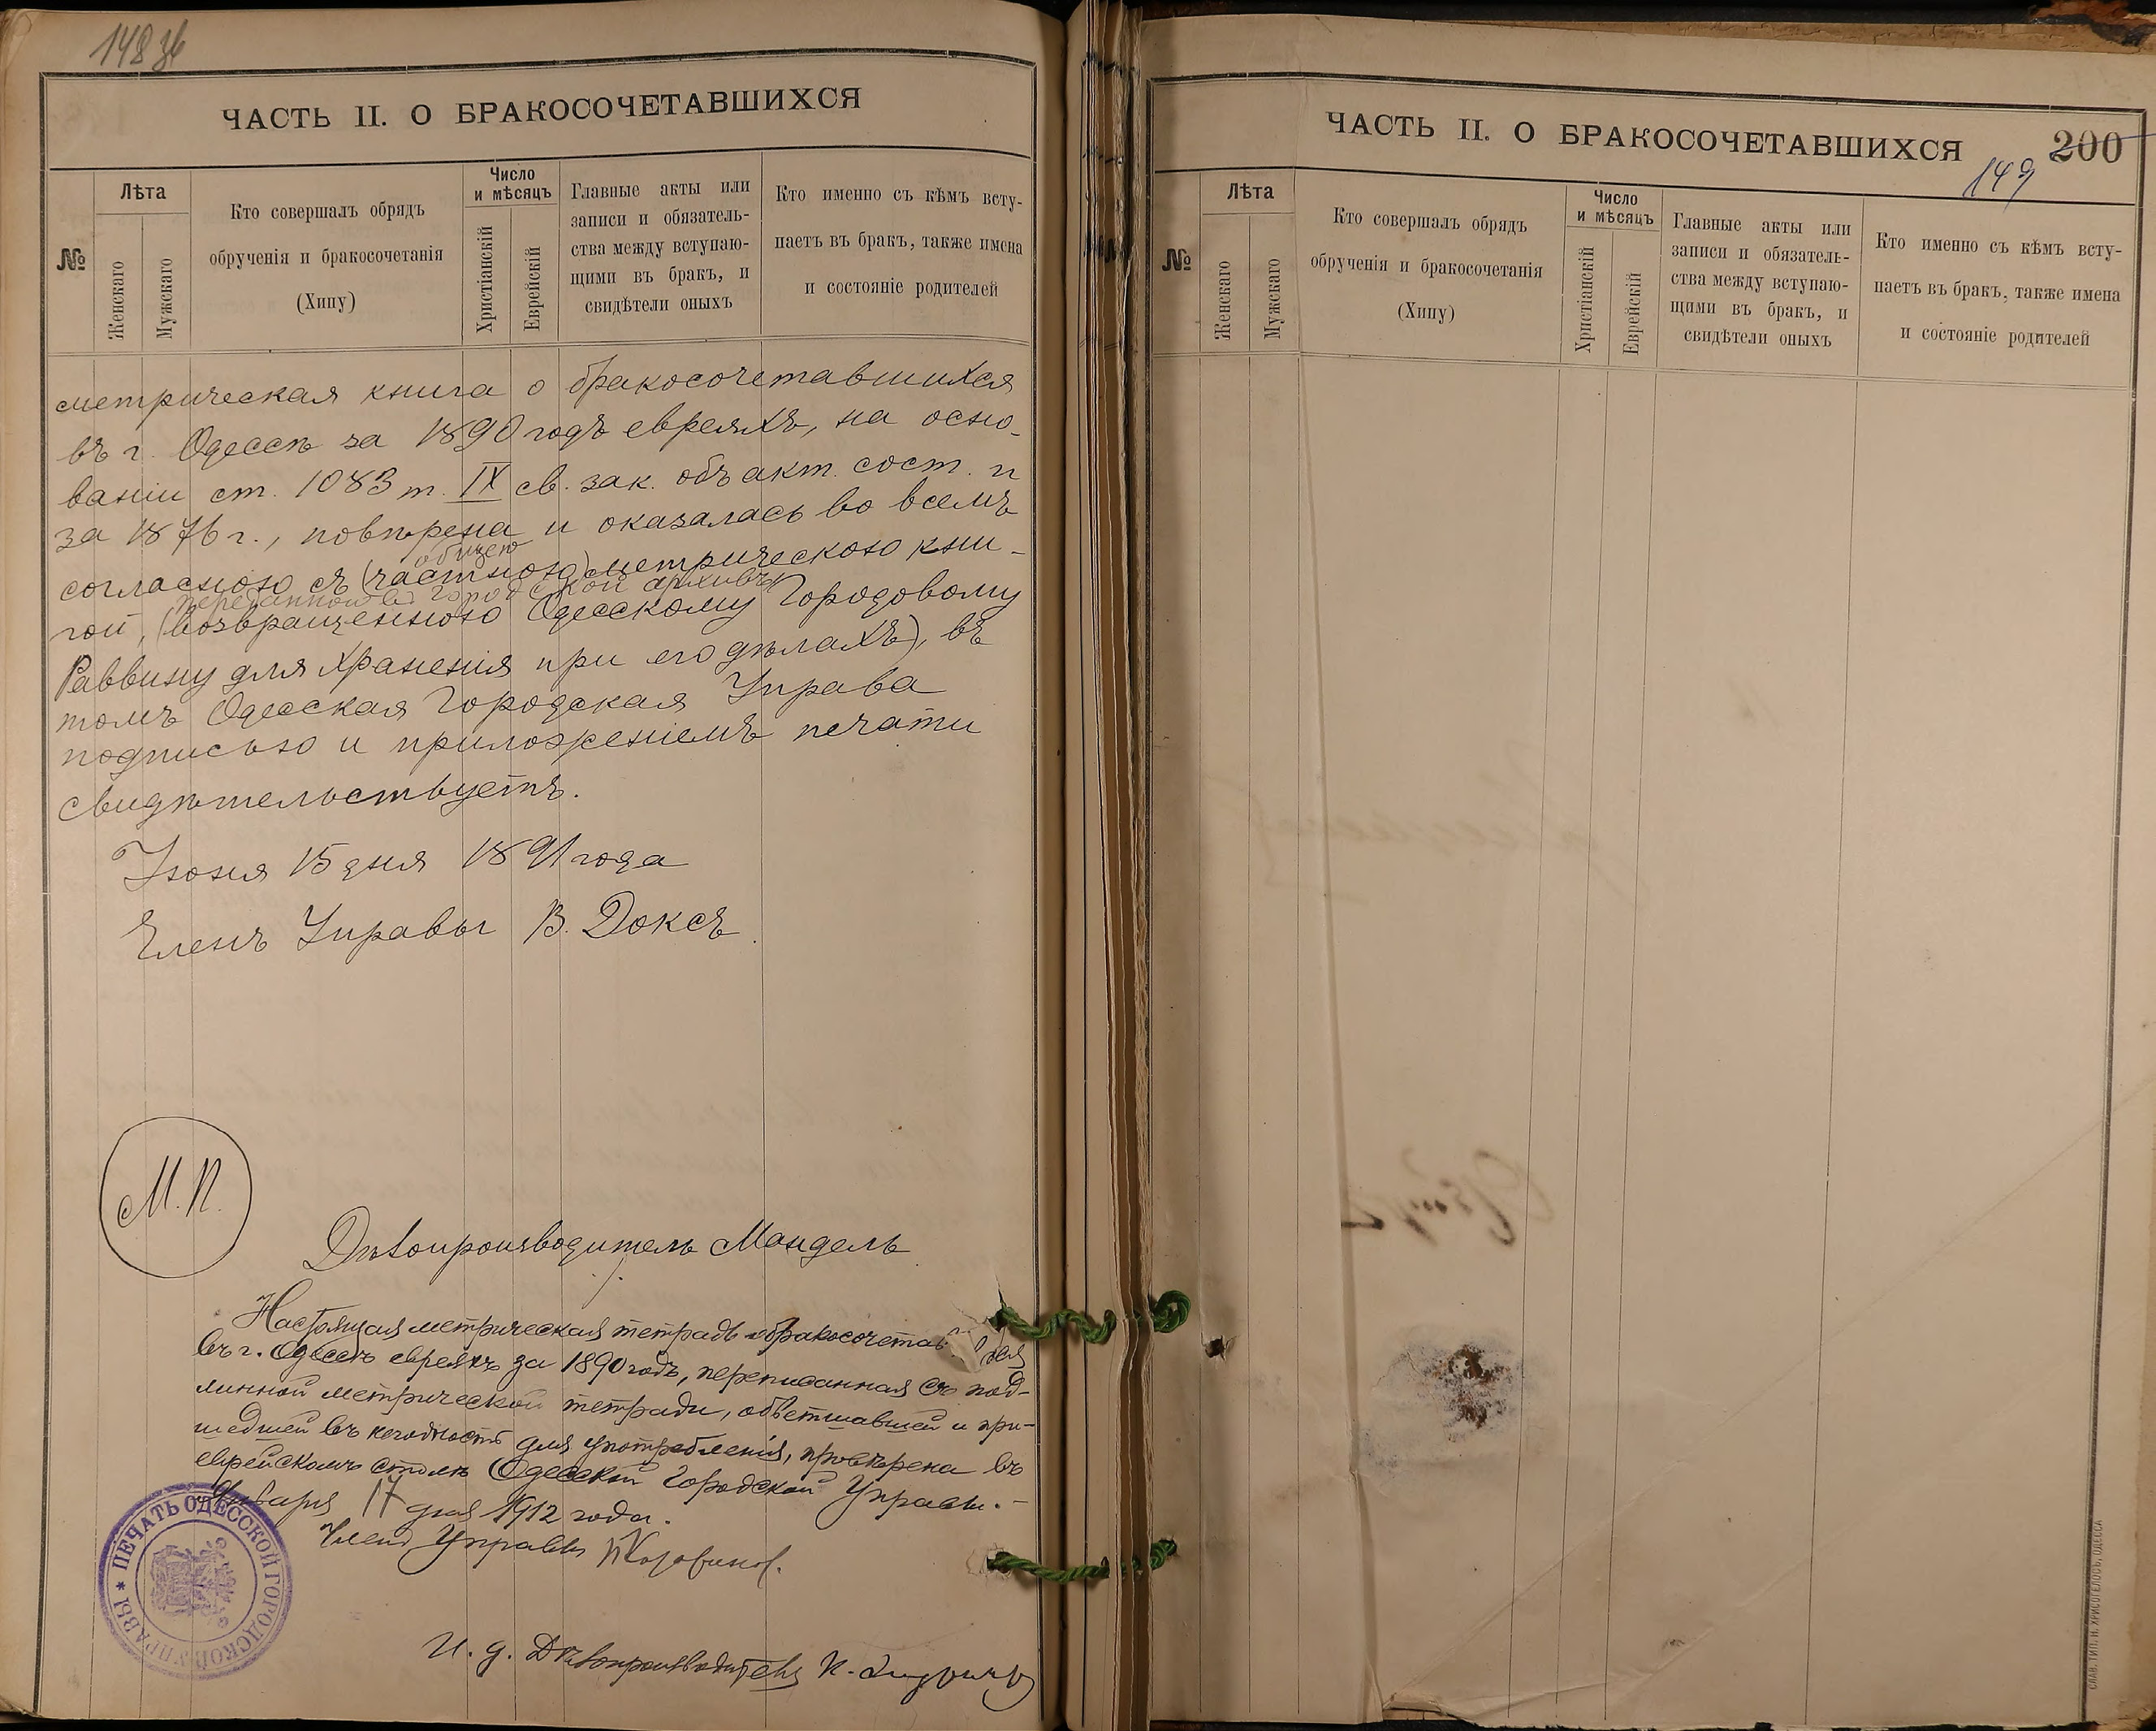 148 об
ЧАСТЬ II. О БРАКОСОЧЕТАВШИХСЯ
№
Лѣта
Женскаго
Мужскаго
Кто совершалъ обрядъ
обрученія и бракосочетанія
(Хипу)
Число
и мѣсяцъ
Христіанскій
Еврейскій
Главные акты или
записи и обязатель-
ства между вступаю-
щими въ бракъ, и
свидѣтели оныхъ
Кто именно съ кѣмъ всту-
паетъ въ бракъ, также имена
и состояніе родителей
метрическая книга о бракосочетавшихся
въ г. Одессѣ за 1890 годъ евреяхъ, на осно-
ваніи ст. 1083 т. IX св. зак. объ акт. сост. п
за 1876 г., повѣрена и оказалась во всемъ
общею
согласною съ (частною) метрическою кни-
переданною въ Городской архивъ
гой, (возвращенною Одесскому Городовому
Раввину для храненія при его дѣлахъ), въ
томъ Одесская Городская Управа
подписью и приложеніемъ печати
свидѣтельствуетъ.
Іюня 15 дня 1891 года
Членъ Управы В. Доксъ.
М. П.
Дѣлопроизводитель Мандель
Настоящая метрическая тетрадь о бракосочетав
въ г. Одессѣ евреяхъ за 1890 годъ, переписанная съ под-
линной метрической тетради, обветшавшей и при-
шедшей въ негодность для употребленія, провѣрена въ
еврейскомъ столѣ Одесской Городской Управы.-
Января 17 дня 1912 года.
Членъ Управы
И. д. Дѣлопроизводителя
* ПЕЧАТЬ ОДЕССКОЙ ГОРОДСКОЙ УПРАВЫ
ЧАСТЬ II. О БРАКОСОЧЕТАВШИХСЯ
200
149
№
Лѣта
Женскаго
Мужскаго
Кто совершалъ обрядъ
обрученія и бракосочетанія
(Хипу)
Число
и мѣсяцъ
Христіанскій
Еврейскій
Главные акты или
записи и обязатель-
ства между вступаю-
щими въ бракъ, и
свидѣтели оныхъ
Кто именно съ кѣмъ всту-
паетъ въ бракъ, также имена
и состояніе родителей
СЛАВ. ТИП. Н. ХРИСОГЕЛОСЪ, ОДЕССА